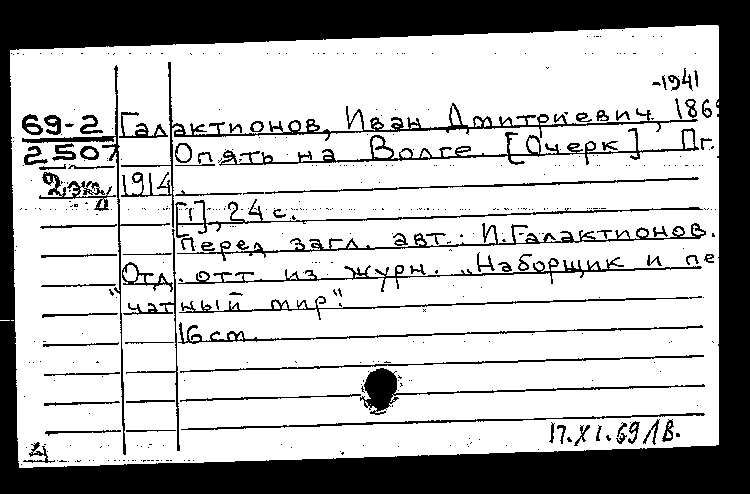 -1941
69-2 Галактионов, Иван Дмитриевич, 1869
2507 Опять на Волге. [Очерк] Пг.
2 экз. 1914.
[1], 24 с.
Перед загл. авт.: И. Галактионов.
Отд. отт. из журн. „Наборщик и пе
чатный мир".
16 см.
17.XI.69 ЛВ.